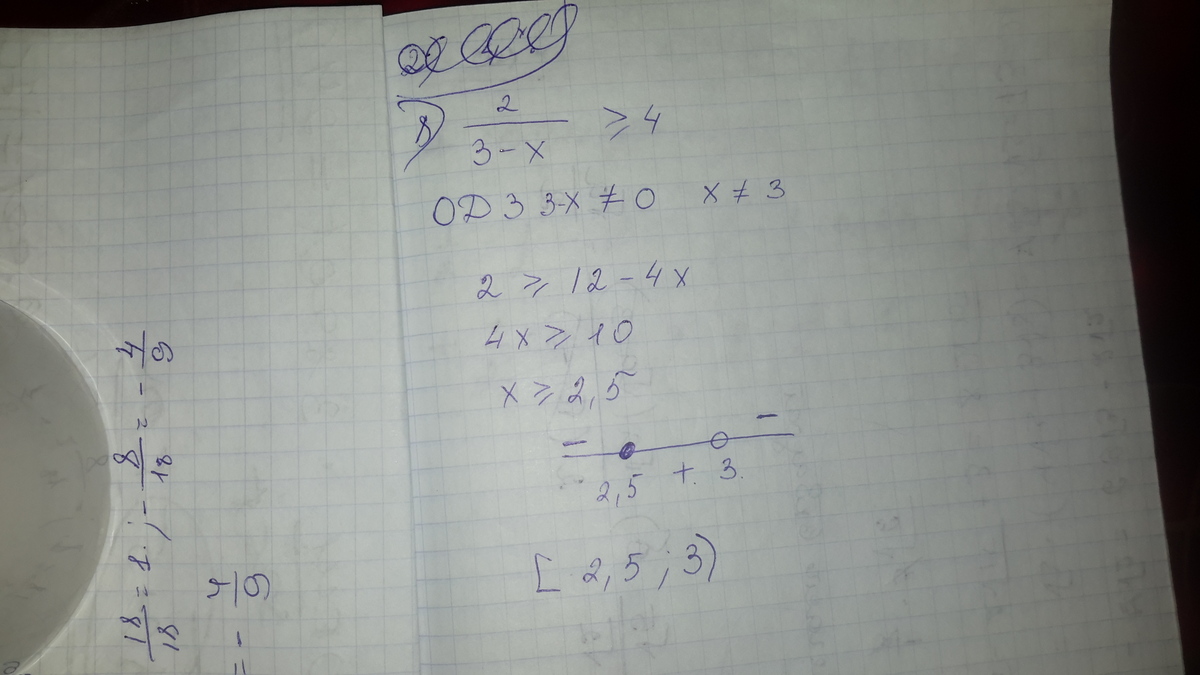 8) 2/(3-x) ⩾ 4
ОДЗ 3-x ≠ 0 x ≠ 3
2 ⩾ 12 - 4x
4x ⩾ 10
x ⩾ 2,5
- -
2,5 + 3
[ 2,5 ; 3)
18/18 = 1 ; - 8/18 = - 4/9
= - 4/9